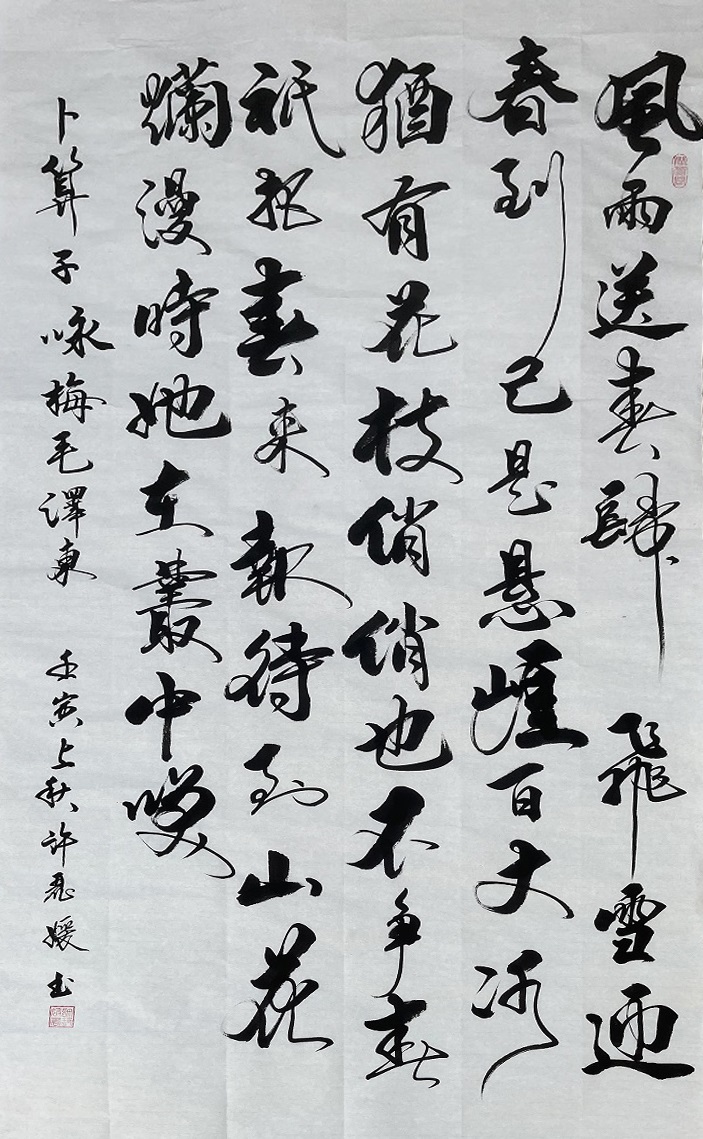 風雨送春歸飛雪迎
春到已是懸崖百丈冰
猶有花枝俏俏也不争春
祇把春来報待到山花
爛漫時她在叢中咲
卜算子咏梅毛澤東 壬寅上秋許媛书